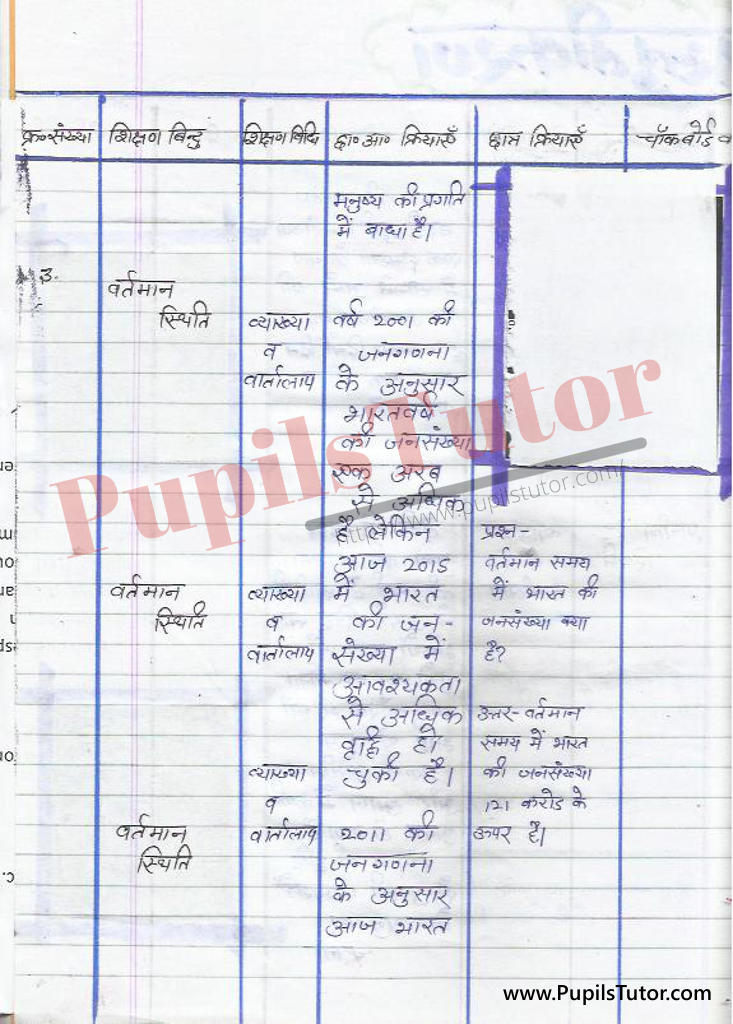 क्र०संख्या शिक्षण बिन्दु शिक्षण विधि छा० आ० क्रियाएँ छात्र क्रियाएँ चॉकबोर्ड
मनुष्य की प्रगति
में बाधा है।
3.
वर्तमान
स्थिति व्याख्या वर्ष 2001 की
व जनगणना
वार्तालाप के अनुसार
भारतवर्ष
की जनसंख्या
एक अरब
से अधिक
है लेकिन प्रश्न-
आज 2015 वर्तमान समय
वर्तमान व्याख्या में भारत में भारत की
स्थिति व की जन- जनसंख्या क्या
वार्तालाप संख्या में है?
आवश्यकता
से अधिक उत्तर- वर्तमान
वृद्धि हो समय में भारत
व्याख्या चुकी है। की जनसंख्या
व 121 करोड के
वर्तमान वार्तालाप 2011 की ऊपर है।
स्थिति जनगणना
के अनुसार
आज भारत
PupilsTutor
https://www.pupilstutor.com/
www.PupilsTutor.com